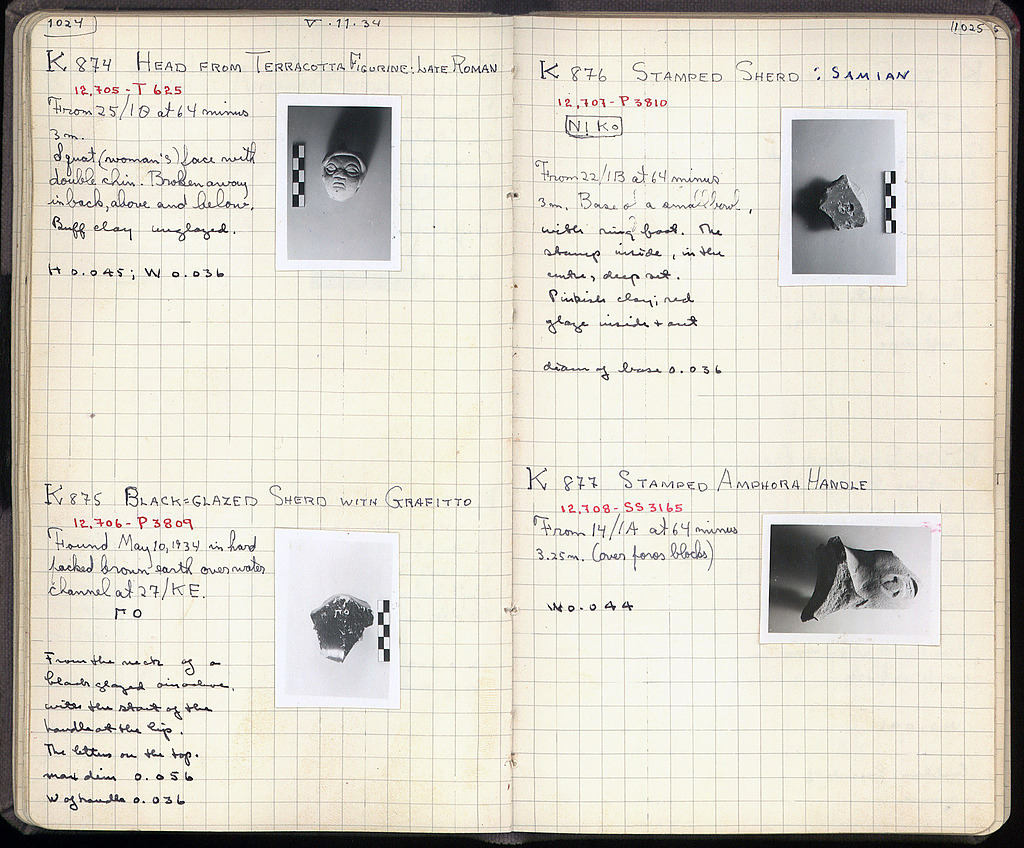 1024
V·11·34
K 874 HEAD FROM TERRACOTTA FIGURINE: LATE ROMAN
12,705 - T 625
From 25/ΙΘ at 64 minus
3 m.
Squat (woman's) face with
double chin. Broken away
in back, above and below.
Buff clay unglazed.
H 0.045; W 0.036
K 875 BLACK=GLAZED SHERD WITH GRAFITTO
12,706 - P 3809
Found May 10, 1934 in hard
packed brown earth over water
channel at 27/ΚΕ.
ΓΟ
From the neck of a
black glazed oinochoe,
with the start of the
handle at the lip.
The letters on the top.
max dim 0.056
W of handle 0.036
1025
K 876 STAMPED SHERD : SAMIAN
12,707 - P 3810
NIKO
From 22/ΙΒ at 64 minus
3m. Base of a small bowl,
with ring foot. The
stamp inside, in the
centre, deep set.
Pinkish clay; red
glaze inside + out
diam of base 0.036
K 877 STAMPED AMPHORA HANDLE
12,708 - SS 3165
From 14/ΙΑ at 64 minus
3.25m. (over poros blocks)
W 0.044